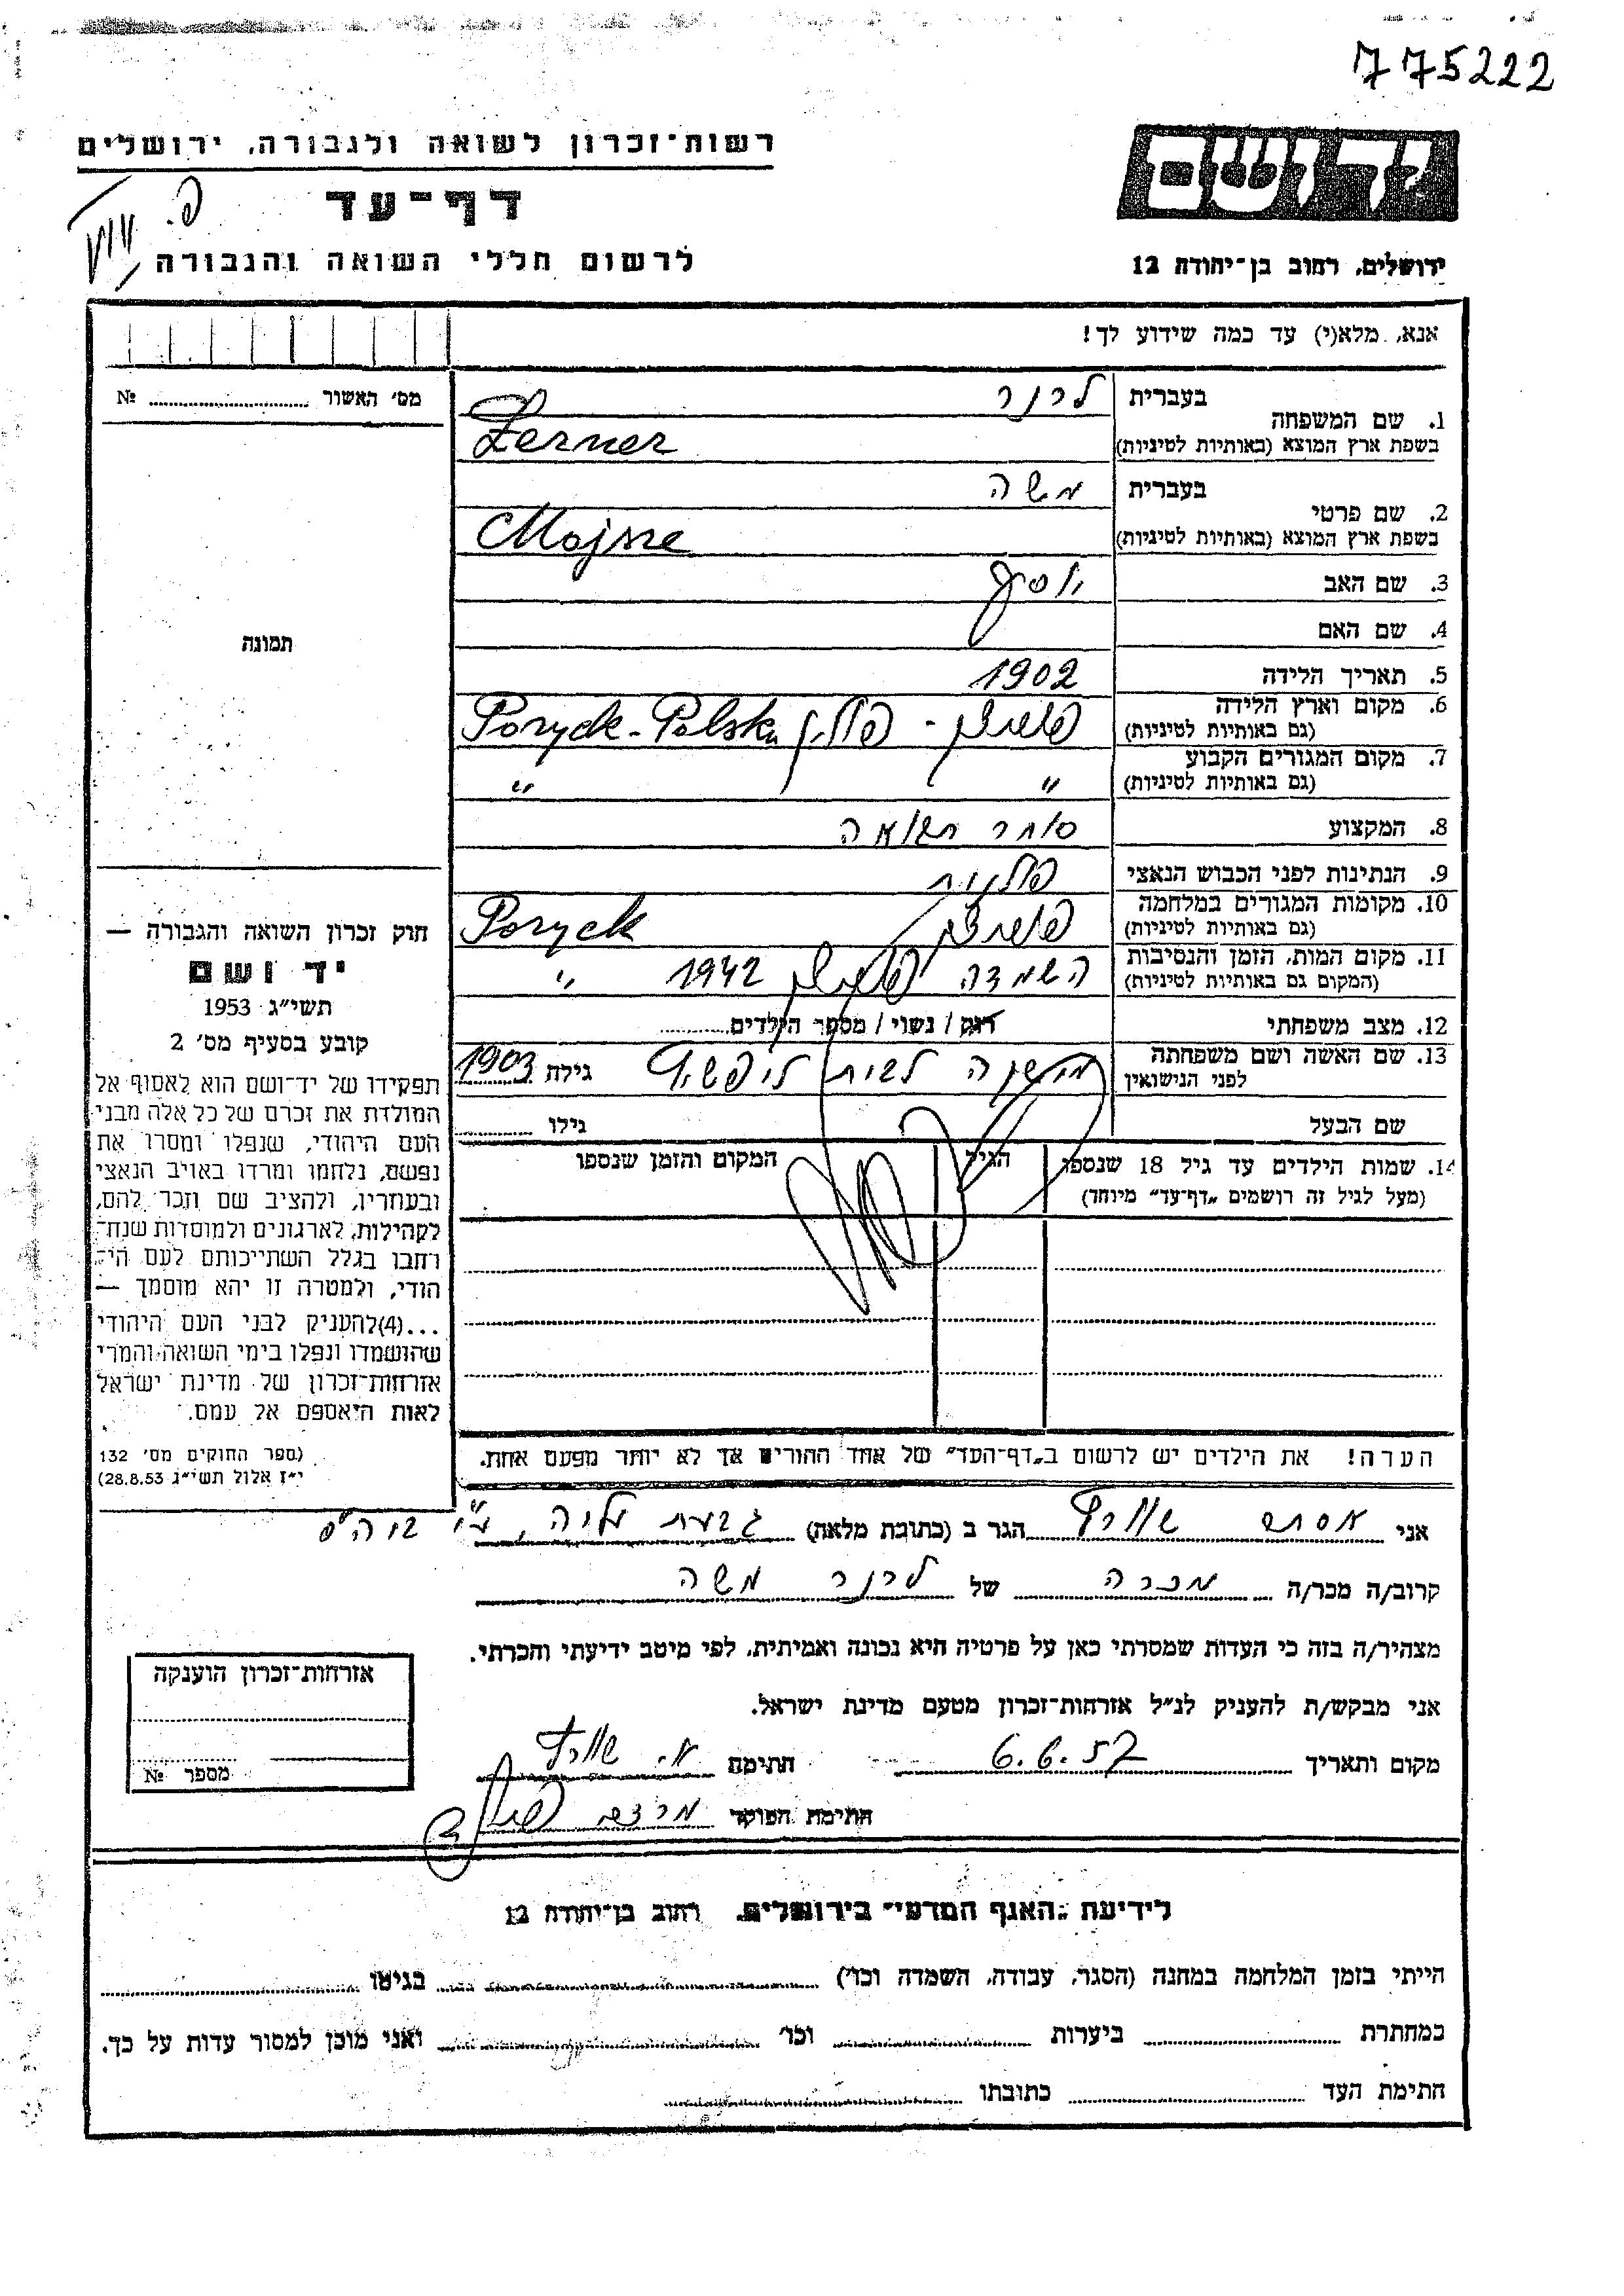 775222
רשות־זכרון לשואה ולגבורה, ירושלים
דף־עד
לרשום חללי השואה והגבורה
ידושם
ירושלים, רחוב בן־יהודה 12
אנא, מלא(י) עד כמה שידוע לך!
מס׳ האשור № 
1. שם המשפחה
בעברית לרנר
בשפת ארץ המוצא (באותיות לטיניות) Lerner
2. שם פרטי
בעברית משה
בשפת ארץ המוצא (באותיות לטיניות) Mojsze
3. שם האב יוסף
4. שם האם
5. תאריך הלידה 1902
6. מקום וארץ הלידה
(גם באותיות לטיניות) פוריצק - פולין Poryck-Polska
7. מקום המגורים הקבוע
(גם באותיות לטיניות) " "
8. המקצוע סוחר תבואה
9. הנתינות לפני הכבוש הנאצי פולנית
10. מקומות המגורים במלחמה
(גם באותיות לטיניות) פוריצק Poryck
11. מקום המות, הזמן והנסיבות
(המקום גם באותיות לטיניות) השמדה 1942 "
12. מצב משפחתי רוק / נשוי / מספר הילדים
13. שם האשה ושם משפחתה
לפני הנישואין לבית גילה 1903
שם הבעל גילו
14. שמות הילדים עד גיל 18 שנספו הגיל המקום והזמן שנספו
(מעל לגיל זה רושמים „דף־עד” מיוחד)
תמונה
חוק זכרון השואה והגבורה —
יד ושם
תשי״ג 1953
קובע בסעיף מס׳ 2
תפקידו של יד־ושם הוא לאסוף אל
המולדת את זכרם של כל אלה מבני
העם היהודי, שנפלו ומסרו את
נפשם, נלחמו ומרדו באויב הנאצי
ובעוזריו, ולהציב שם וזכר להם,
לקהילות, לארגונים ולמוסדות שנח־
רחבו בגלל השתייכותם לעם הי־
הודי, ולמטרה זו יהא מוסמך —
...(4)להעניק לבני העם היהודי
שהושמדו ונפלו בימי השואה והמרי
אזרחות־זכרון של מדינת ישראל
לאות היאספם אל עמם.
(ספר החוקים מס׳ 132
י״ז אלול תשי״ג 28.8.53)
הערה! את הילדים יש לרשום ב„דף־העד” של אחד ההורים אך לא יותר מפעם אחת.
אני אסתר הגר ב (כתובת מלאה) גבעת עליה,
קרוב/ה מכר/ה מכרה של לרנר משה
מצהיר/ה בזה כי העדות שמסרתי כאן על פרטיה היא נכונה ואמיתית, לפי מיטב ידיעתי והכרתי.
אני מבקש/ת להעניק לנ״ל אזרחות־זכרון מטעם מדינת ישראל.
מקום ותאריך 6.6.57 חתימה א.
חתימת הפוקד
אזרחות־זכרון הוענקה
מספר №
לידיעת „האגף המדעי” בירושלים, רחוב בן־יהודה 12
הייתי בזמן המלחמה במחנה (הסגר, עבודה, השמדה וכו׳) בגיטו
במחתרת ביערות וכו׳ ואני מוכן למסור עדות על כך.
חתימת העד כתובתו